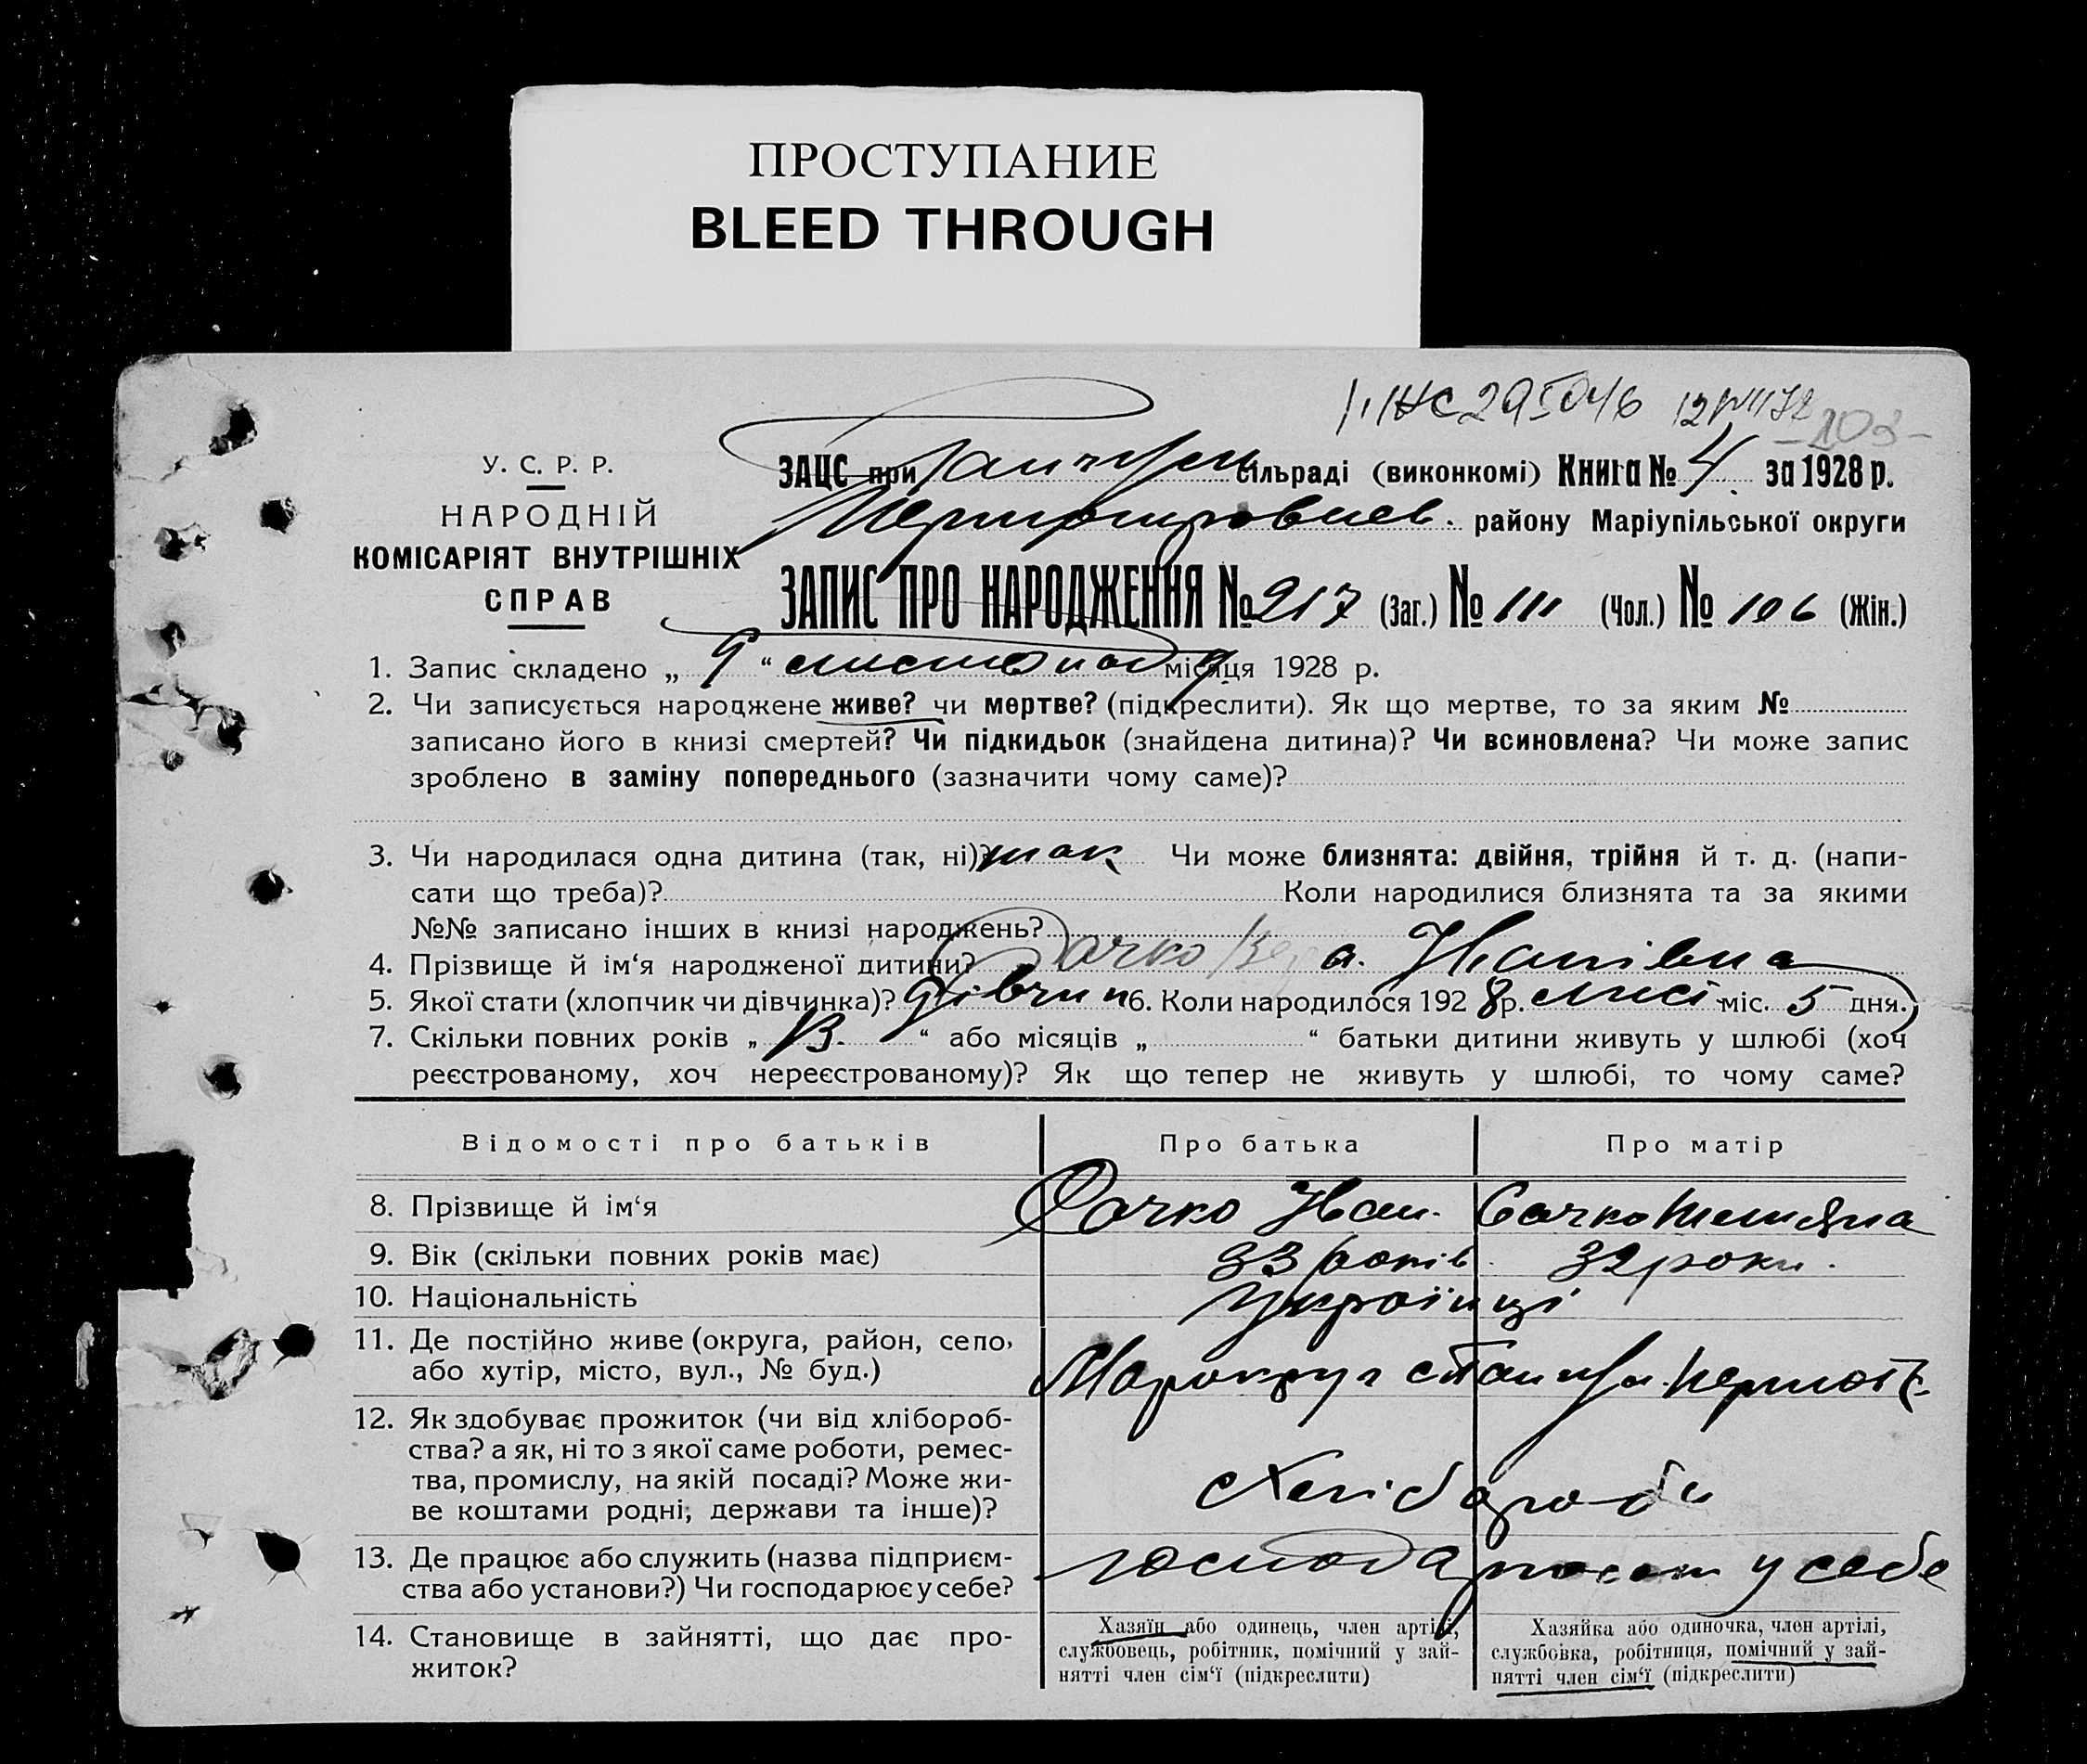 ПРОСТУПАНИЕ
BLEED THROUGH
295046
-103-
У. С. Р. Р.
НАРОДНІЙ
КОМІСАРІЯТ ВНУТРІШНІХ
СПРАВ
ЗАЦС при сільраді (виконкомі) Книга № 4. за 1928 р.
району Маріупільської округи
ЗАПИС ПРО НАРОДЖЕННЯ № 217 (Заг.) № 111 (Чол.) № 106 (Жін.)
1. Запис складено „ 9 “ листопад місяця 1928 р.
2. Чи записується народжене живе? чи мертве? (підкреслити). Як що мертве, то за яким №
записано його в книзі смертей? Чи підкидьок (знайдена дитина)? Чи всиновлена? Чи може запис
зроблено в заміну попереднього (зазначити чому саме)?
3. Чи народилася одна дитина (так, ні)? так Чи може близнята: двійня, трійня й т. д. (напи-
сати що треба)? Коли народилися близнята та за якими
№№ записано інших в книзі народжень?
4. Прізвище й ім‘я народженої дитини? Іванівна
5. Якої стати (хлопчик чи дівчинка)? дівчин 6. Коли народилося 1928 р. лист міс. 5 дня.
7. Скільки повних років „ 13. “ або місяців „ “ батьки дитини живуть у шлюбі (хоч
реєстрованому, хоч нереєстрованому)? Як що тепер не живуть у шлюбі, то чому саме?
Відомості про батьків Про батька Про матір
8. Прізвище й ім‘я Іван.
9. Вік (скільки повних років має) 33 років. 32 роки.
10. Національність Українці
11. Де постійно живе (округа, район, село,
або хутір, місто, вул., № буд.)
12. Як здобуває прожиток (чи від хлібороб-
ства? а як, ні то з якої саме роботи, ремес-
тва, промислу, на якій посаді? Може жи-
ве коштами родні; держави та інше)?
Хліборобы
13. Де працює або служить (назва підприєм-
ства або установи?) Чи господарює у себе?
у себе
14. Становище в зайнятті, що дає про-
житок?
Хазяїн або одинець, член артілі,
службовець, робітник, помічний у зай-
нятті член сім‘ї (підкреслити)
Хазяйка або одиночка, член артілі,
службовка, робітниця, помічний у зай-
нятті член сім‘ї (підкреслити)